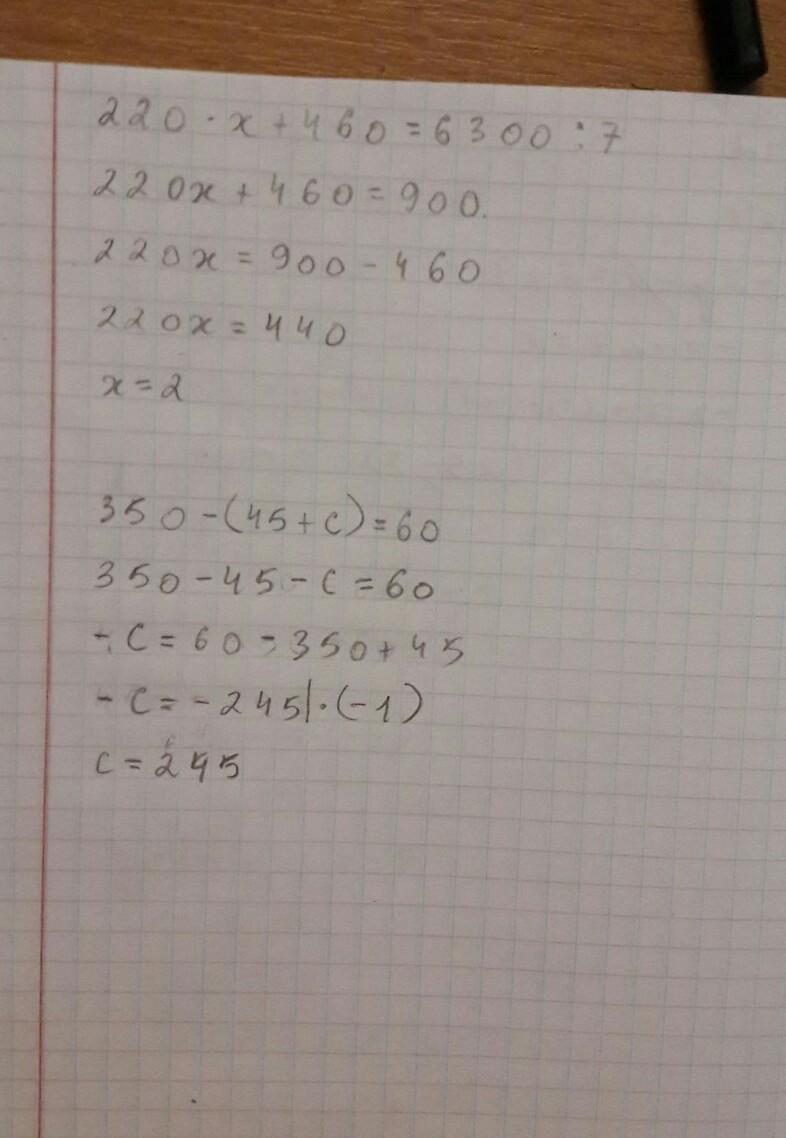 220 · x + 460 = 6300 : 7
220x + 460 = 900.
220x = 900 - 460
220x = 440
x = 2
350 - (45 + c) = 60
350 - 45 - c = 60
- c = 60 - 350 + 45
- c = - 245 | · (-1)
c = 245